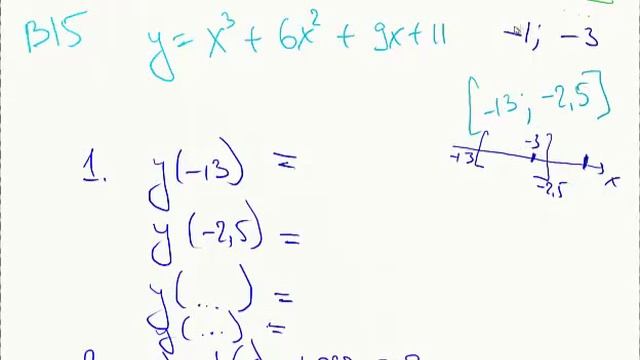 B15 y = x³ + 6x² + 9x + 11 -1; -3
[-13; -2,5]
-13 -3 -2,5 x
1. y(-13) =
y(-2,5) =
y(...) =
y(...) =